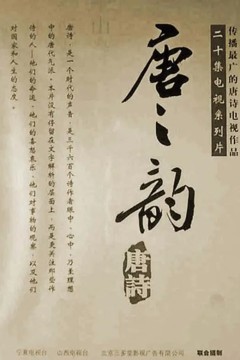 传播最广的唐诗电视作品
二十集电视系列片
唐之韵
唐詩
唐诗，是一个时代的声音，是三千六百个诗作者眼中，心中，乃至理想
中的唐代气派。本片没有停留在文字解析的层面上，而是更关注那些作
诗的人—他们的命运，他们的喜怒哀乐，他们对事物的观察，以及他们
对国家和人生的态度。
宁夏电视台 山西电视台 北京三多堂影视广告有限公司 联合摄制